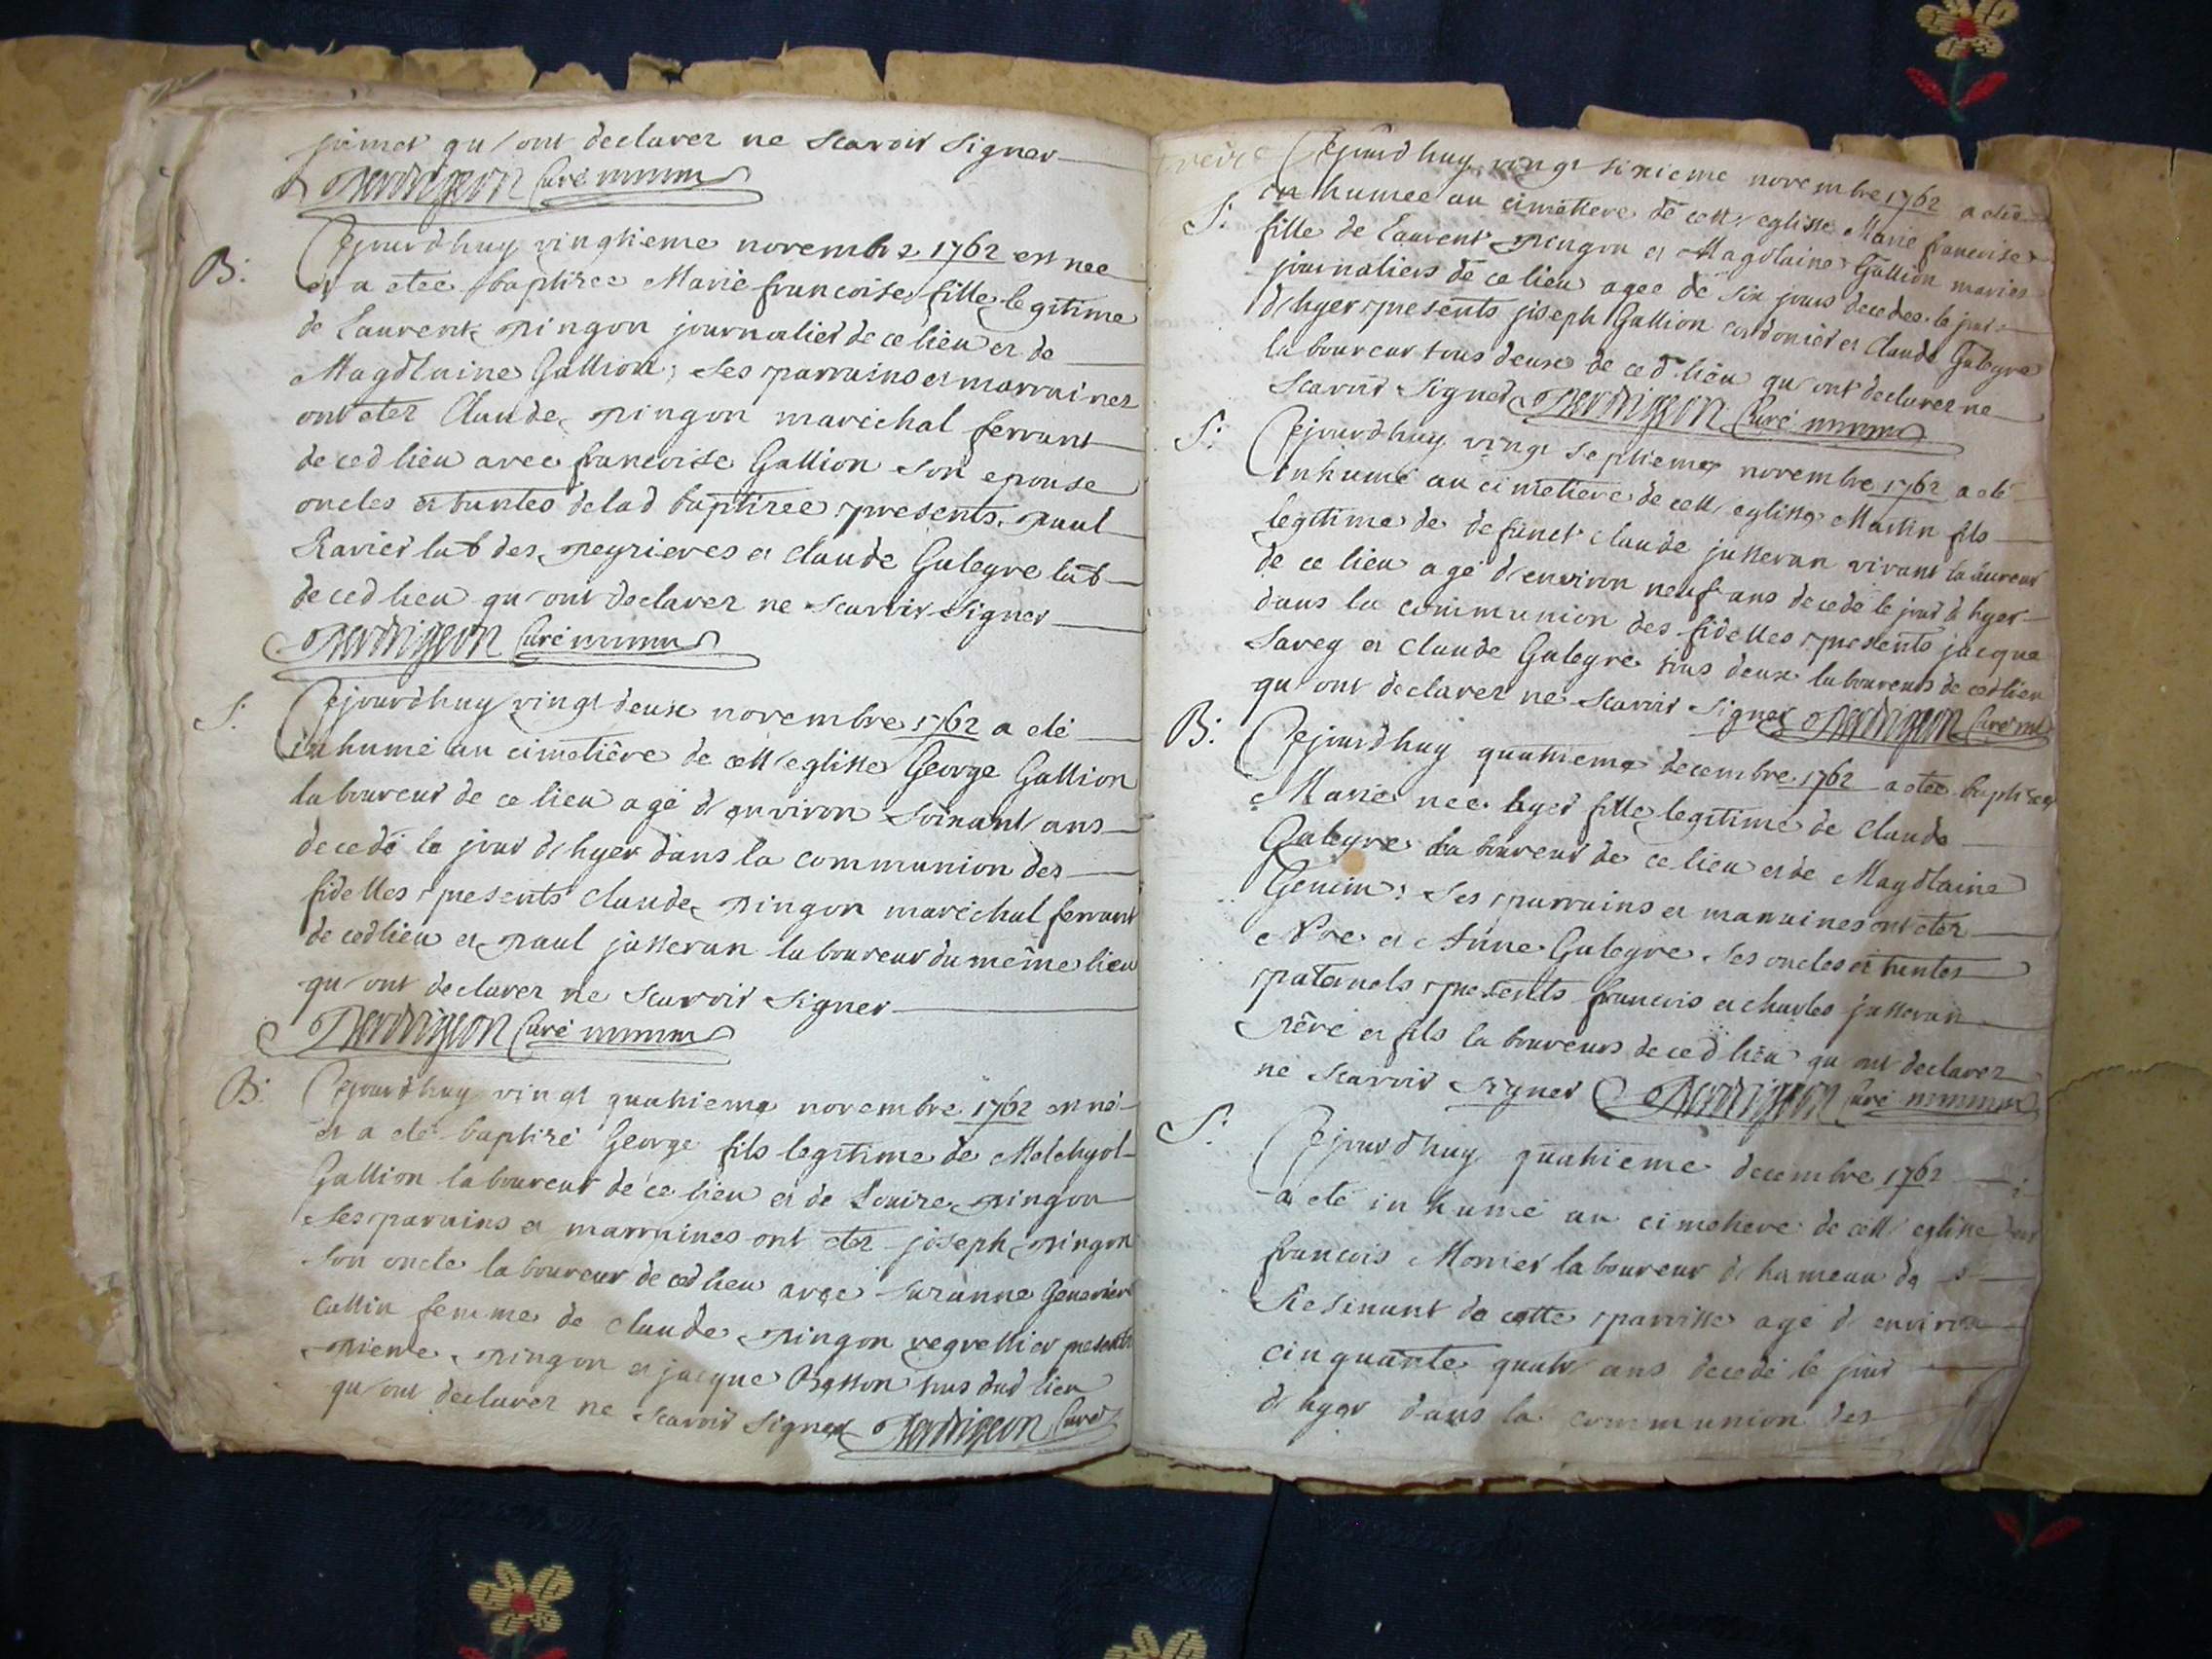 jamet qu'ont declarez ne scavoir signer
Perdrigeon Curé
B: Cejourd'huy vingtieme novembre 1762 est nee
et a etee baptisee Marie francoise fille legitime
de Laurent Pingon journalier de ce lieu et de
Magdlaine Gallion; ses parrains et marraines
ont etez Claude Pingon maréchal ferrant
de ced lieu avec francoise Gallion son epouse
oncles et tantes de lad baptisee presents Paul
Ravier lab des Peyrieres et Claude Galegre lab
de ced lieu qu'ont declarez ne scavoir signer
Perdrigeon Curé
S: Cejourd'huy vingt deux novembre 1762 a eté
inhumé au cimetière de cett eglisse George Gallion
laboureur de ce lieu agé d'environ soixant ans
decedé le jour d'hyer dans la communion des
fidelles presents Claude Pingon maréchal ferrant
de ced lieu et Paul jasseran laboureur du même lieu
qu'ont declarez ne scavoir signer
Perdrigeon Curé
B: Cejourd'huy vingt quatrieme novembre 1762 est né
et a eté baptisé George fils legitime de Melchyol
Gallion laboureur de ce lieu et de Louise Pingon
ses parrains et marraines ont etez joseph Pingon
son oncle laboureur de ced lieu avec Suzanne Genevieve
Collin femme de Claude Pingon regrettier presents
Pierre Pingon et jacque Basson tous dud lieu
qu'ont declarez ne scavoir signer Perdrigeon Curé
treize Cejourd'huy vingt sixieme novembre 1762 a etée
S: inhumee au cimetiere de cett eglisse Marie francoise
fille de Laurent Pingon et Magdlaine Gallion mariés
journaliers de ce lieu agee de six jours decedee le jour
d'hyer presents joseph Gallion cordonier et Claude Galegre
laboureur tous deux de ced lieu qu'ont declarez ne
scavoir signer Perdrigeon Curé
S: Cejourd'huy vingt septieme novembre 1762 a eté
inhumé au cimetiere de cett eglisse Martin fils
legitime de defunct Claude jasseran vivant laboureur
de ce lieu agé d'environ neuf ans decedé le jour d'hyer
dans la communion des fidelles presents jacque
Sarey et Claude Galegre tous deux laboureurs de ced lieu
qu'ont declarez ne scavoir signer Perdrigeon Curé
B: Cejourd'huy quatrieme decembre 1762 a etee baptisee
Marie nee hyer fille legitime de Claude
Galegre laboureur de ce lieu et de Magdlaine
Genin: ses parrains et marraines ont etez
et Anne Galegre ses oncles et tantes
paternels presents francois et charles jasseran
Père et fils laboureurs de ced lieu qu'ont declarez
ne scavoir signer Perdrigeon Curé
S: Cejourd'huy quatrieme decembre 1762
a eté inhumé au cimetiere de cett eglisse
francois Monier laboureur d'hameau de
Resinant de cette parroisse agé d'environ
cinquante quatr ans decedé le jour
d'hyer dans la communion des